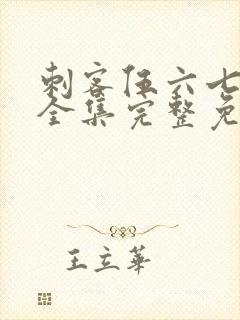 刺客伍六七
全集完整免
王立华